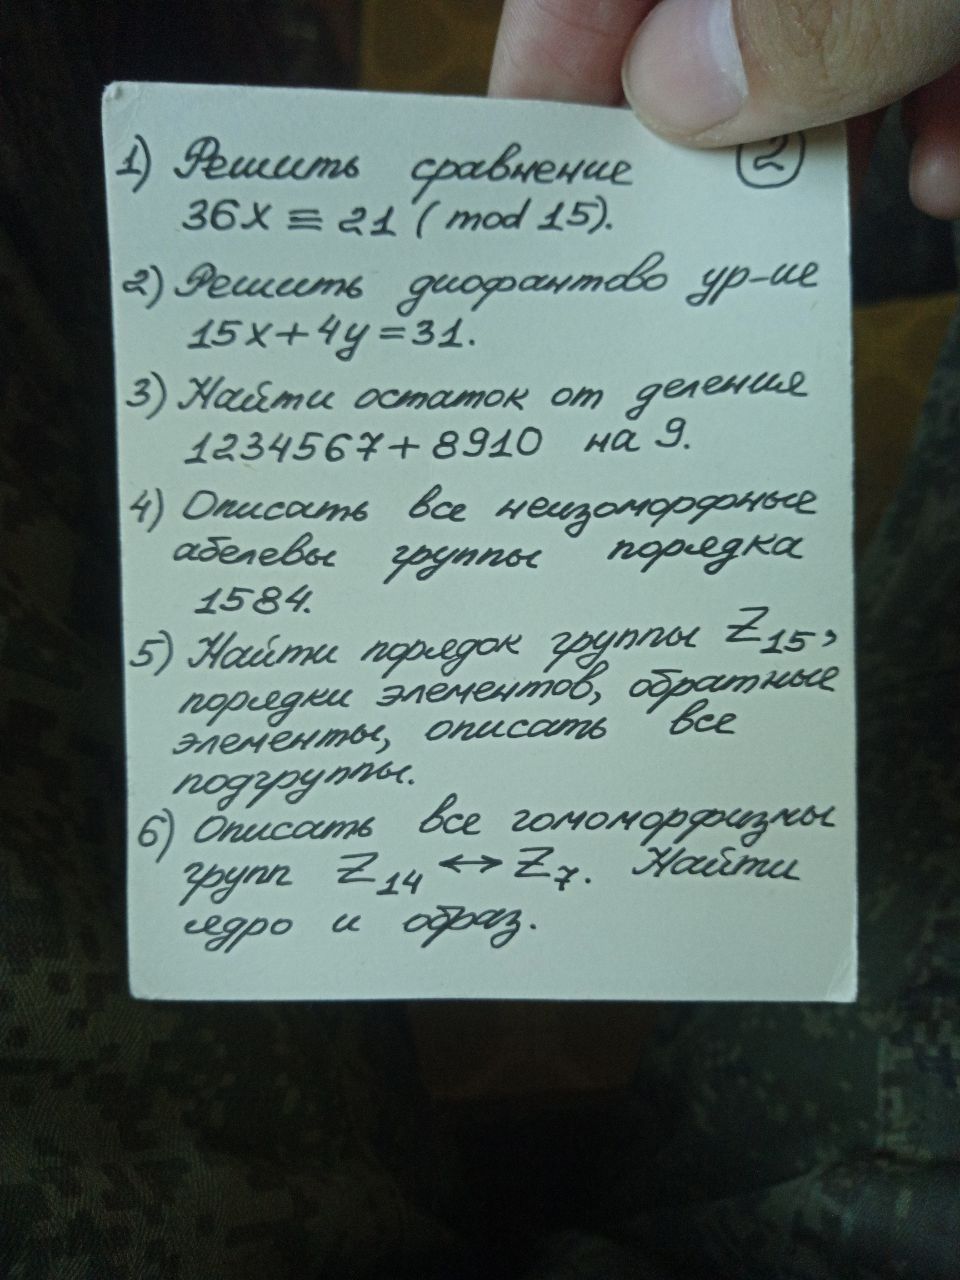 1) Решить сравнение (2)
36x ≡ 21 (mod 15).
2) Решить диофантово ур-ие
15x+4y=31.
3) Найти остаток от деления
1234567+8910 на 9.
4) Описать все неизоморфные
абелевы группы порядка
1584.
5) Найти порядок группы Z₁₅,
порядки элементов, обратные
элементы, описать все
подгруппы.
6) Описать все гомоморфизмы
групп Z₁₄ ↔ Z₇. Найти
ядро и образ.